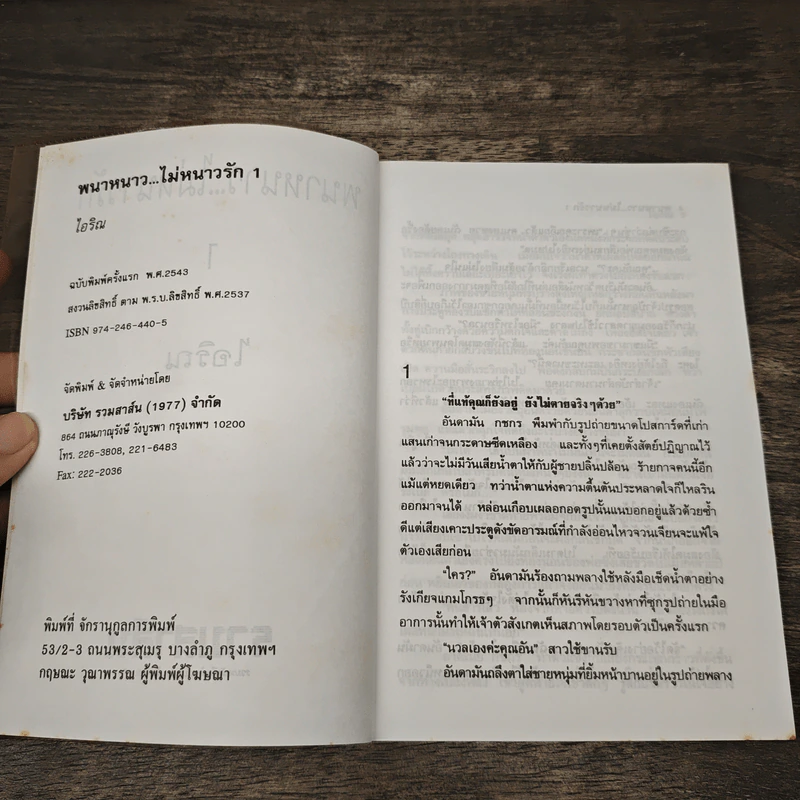 พนาหนาว...ไม่หนาวรัก 1
ไอริณ
ฉบับพิมพ์ครั้งแรก พ.ศ.2543
สงวนลิขสิทธิ์ ตาม พ.ร.บ.ลิขสิทธิ์ พ.ศ.2537
ISBN 974-246-440-5
จัดพิมพ์ & จัดจำหน่ายโดย
บริษัท รวมสาส์น (1977) จำกัด
864 ถนนภาณุรังษี วังบูรพา กรุงเทพฯ 10200
โทร. 226-3808, 221-6483
Fax: 222-2036
พิมพ์ที่ จักรานุกูลการพิมพ์
53/2-3 ถนนพระสุเมรุ บางลำภู กรุงเทพฯ
กฤษณะ วุฒาพรรณ ผู้พิมพ์ผู้โฆษณา
1
"ที่แท้คุณก็ยังอยู่ ยังไม่ตายจริงๆด้วย"
อันดามัน กชกร พึมพำกับรูปถ่ายขนาดโปสการ์ดที่เก่า
แสนเก่าจนกระดาษซีดเหลือง และทั้งๆที่เคยตั้งสัตย์ปฏิญาณไว้
แล้วว่าจะไม่มีวันเสียน้ำตาให้กับผู้ชายปลิ้นปล้อน ร้ายกาจคนนี้อีก
แม้แต่หยดเดียว ทว่าน้ำตาแห่งความตื้นตันประหลาดใจก็ไหลริน
ออกมาจนได้ หล่อนเกือบเผลอกอดรูปนั้นแนบอกอยู่แล้วด้วยซ้ำ
ดีแต่เสียงเคาะประตูดังขัดอารมณ์ที่กำลังอ่อนไหวจวนเจียนจะแพ้ใจ
ตัวเองเสียก่อน
"ใคร?" อันดามันร้องถามพลางใช้หลังมือเช็ดน้ำตาอย่าง
รังเกียจแกมโกรธๆ จากนั้นก็หันรีหันขวางหาที่ซุกรูปถ่ายในมือ
อาการนั้นทำให้เจ้าตัวสังเกตเห็นสภาพโดยรอบตัวเป็นครั้งแรก
"นวลเองค่ะคุณอัน" สาวใช้ขานรับ
อันดามันถลึงตาใส่ชายหนุ่มที่ยิ้มหน้าบานอยู่ในรูปถ่ายพลาง